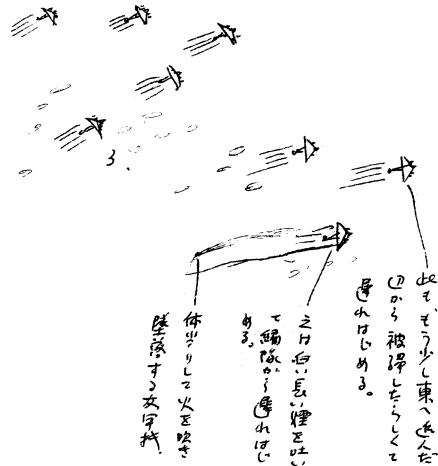 3.
此も、もう少し東へ進んだ
辺から被弾したらしくて
遅れはじめる。
之は白い長い煙を吐い
て編隊から遅れはじ
める。
体当りして火を吹き
墜落する友軍機.